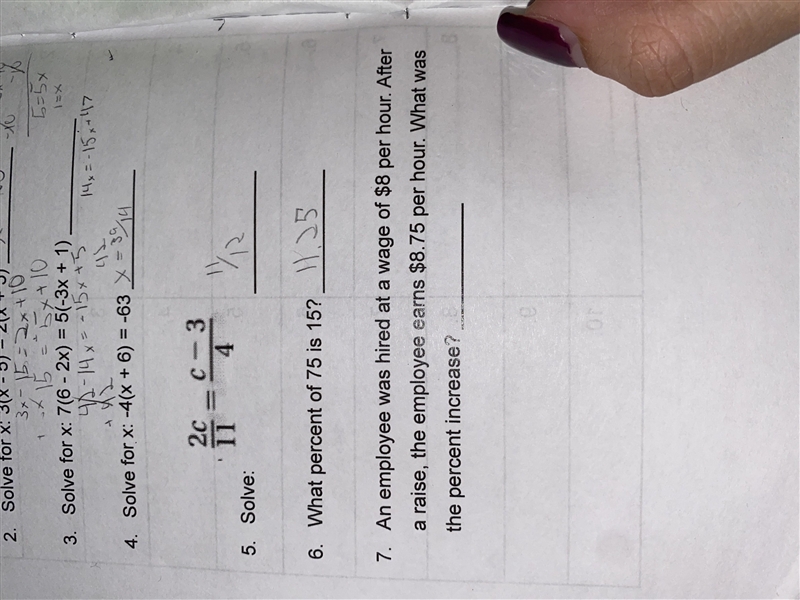 2. Solve for x: 3(x - 5) = 2(x + 5)
3x - 15 = 2x + 10
5 = 5x
1 = x
3. Solve for x: 7(6 - 2x) = 5(-3x + 1)
42 - 14x = -15x + 5
14x = -15x + 47
4. Solve for x: -4(x + 6) = -63 x = 39/14
2c/11 = c - 3/4
5. Solve: 11/12
6. What percent of 75 is 15? 11.25
7. An employee was hired at a wage of $8 per hour. After
a raise, the employee earns $8.75 per hour. What was
the percent increase?